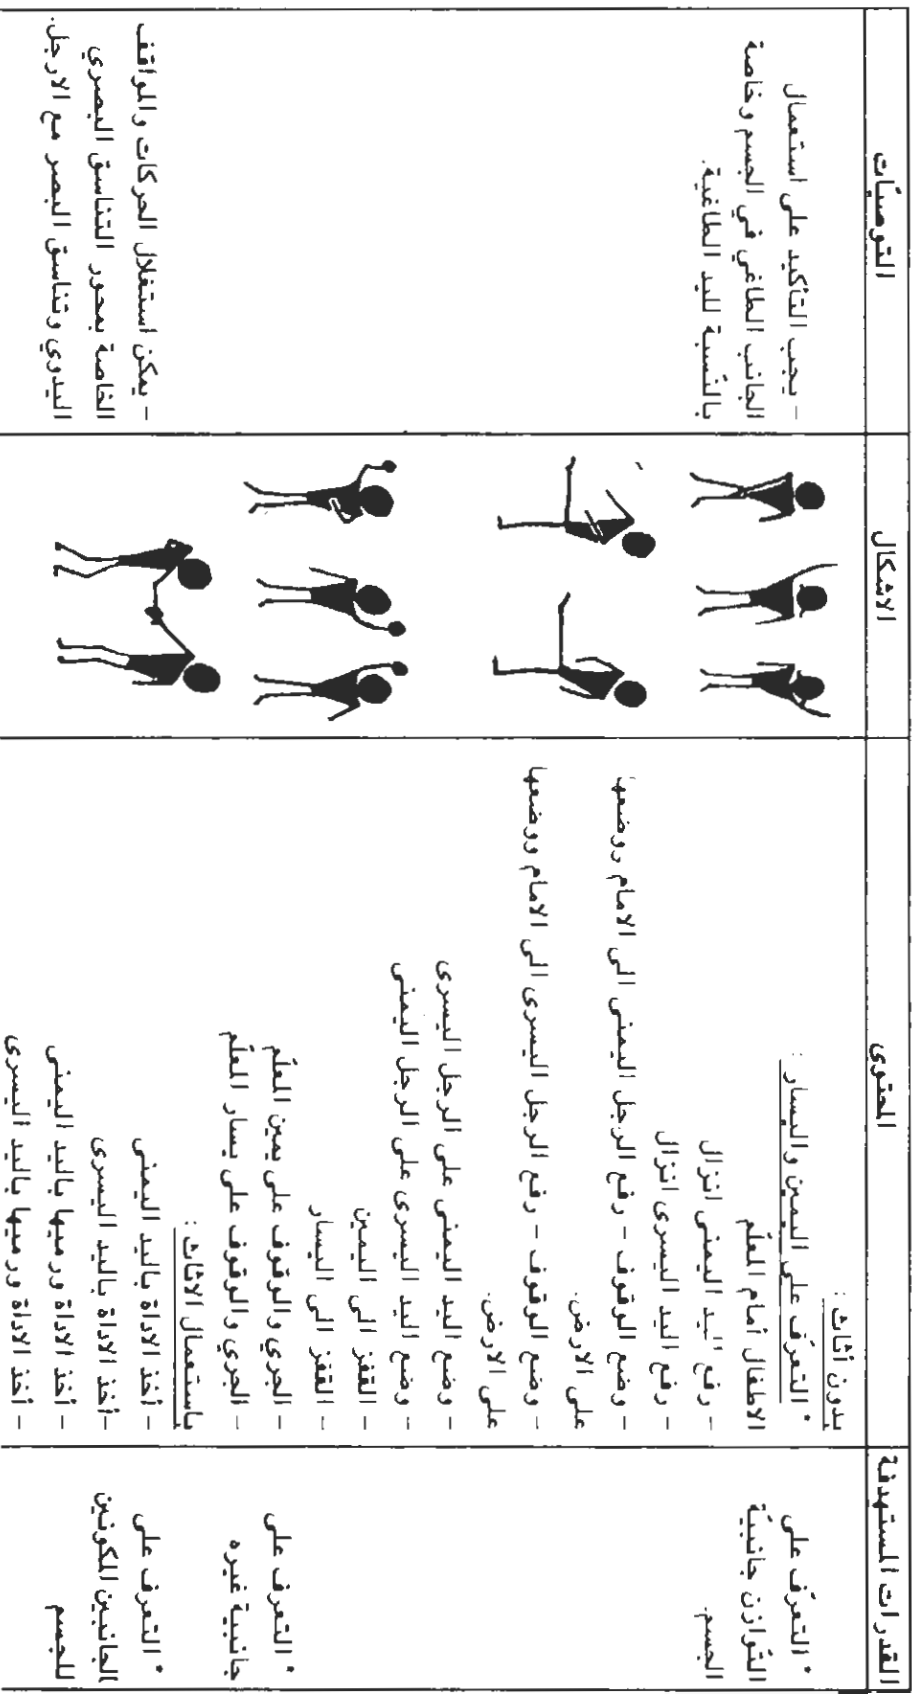 القدرات المستهدفة
المحتوى
الاشكال
التوصيّات
* التعرّف على
التوازن جانبيّة
الجسم.
* التعرف على
جانبية غيره
* التعرف على
الجانبين المكونين
للجسم
بدون أثاث :
* التعرّف على اليمين واليسار :
الاطفال أمام المعلّم
- رفع اليد اليمنى انزال
- رفع اليد اليسرى انزال
- وضع الوقوف - رفع الرجل اليمنى الى الامام ووضعها
على الارض.
- وضع الوقوف - رفع الرجل اليسرى الى الامام ووضعها
على الارض.
- وضع اليد اليمنى على الرجل اليسرى
- وضع اليد اليسرى على الرجل اليمنى
- القفز الى اليمين
- القفز الى اليسار
- الجري والوقوف على يمين المعلّم
- الجري والوقوف على يسار المعلّم
باستعمال الاثاث :
- أخذ الاداة باليد اليمنى
- أخذ الاداة باليد اليسرى
- أخذ الاداة ورميها باليد اليمنى
- أخذ الاداة ورميها باليد اليسرى
- يجب التأكيد على استعمال
الجانب الطاغي في الجسم وخاصة
بالنّسبة لليد الطاغية.
- يمكن استغلال الحركات والمواقف
الخاصة بمحور التناسق البصري
اليدوي وتناسق البصر مع الارجل.